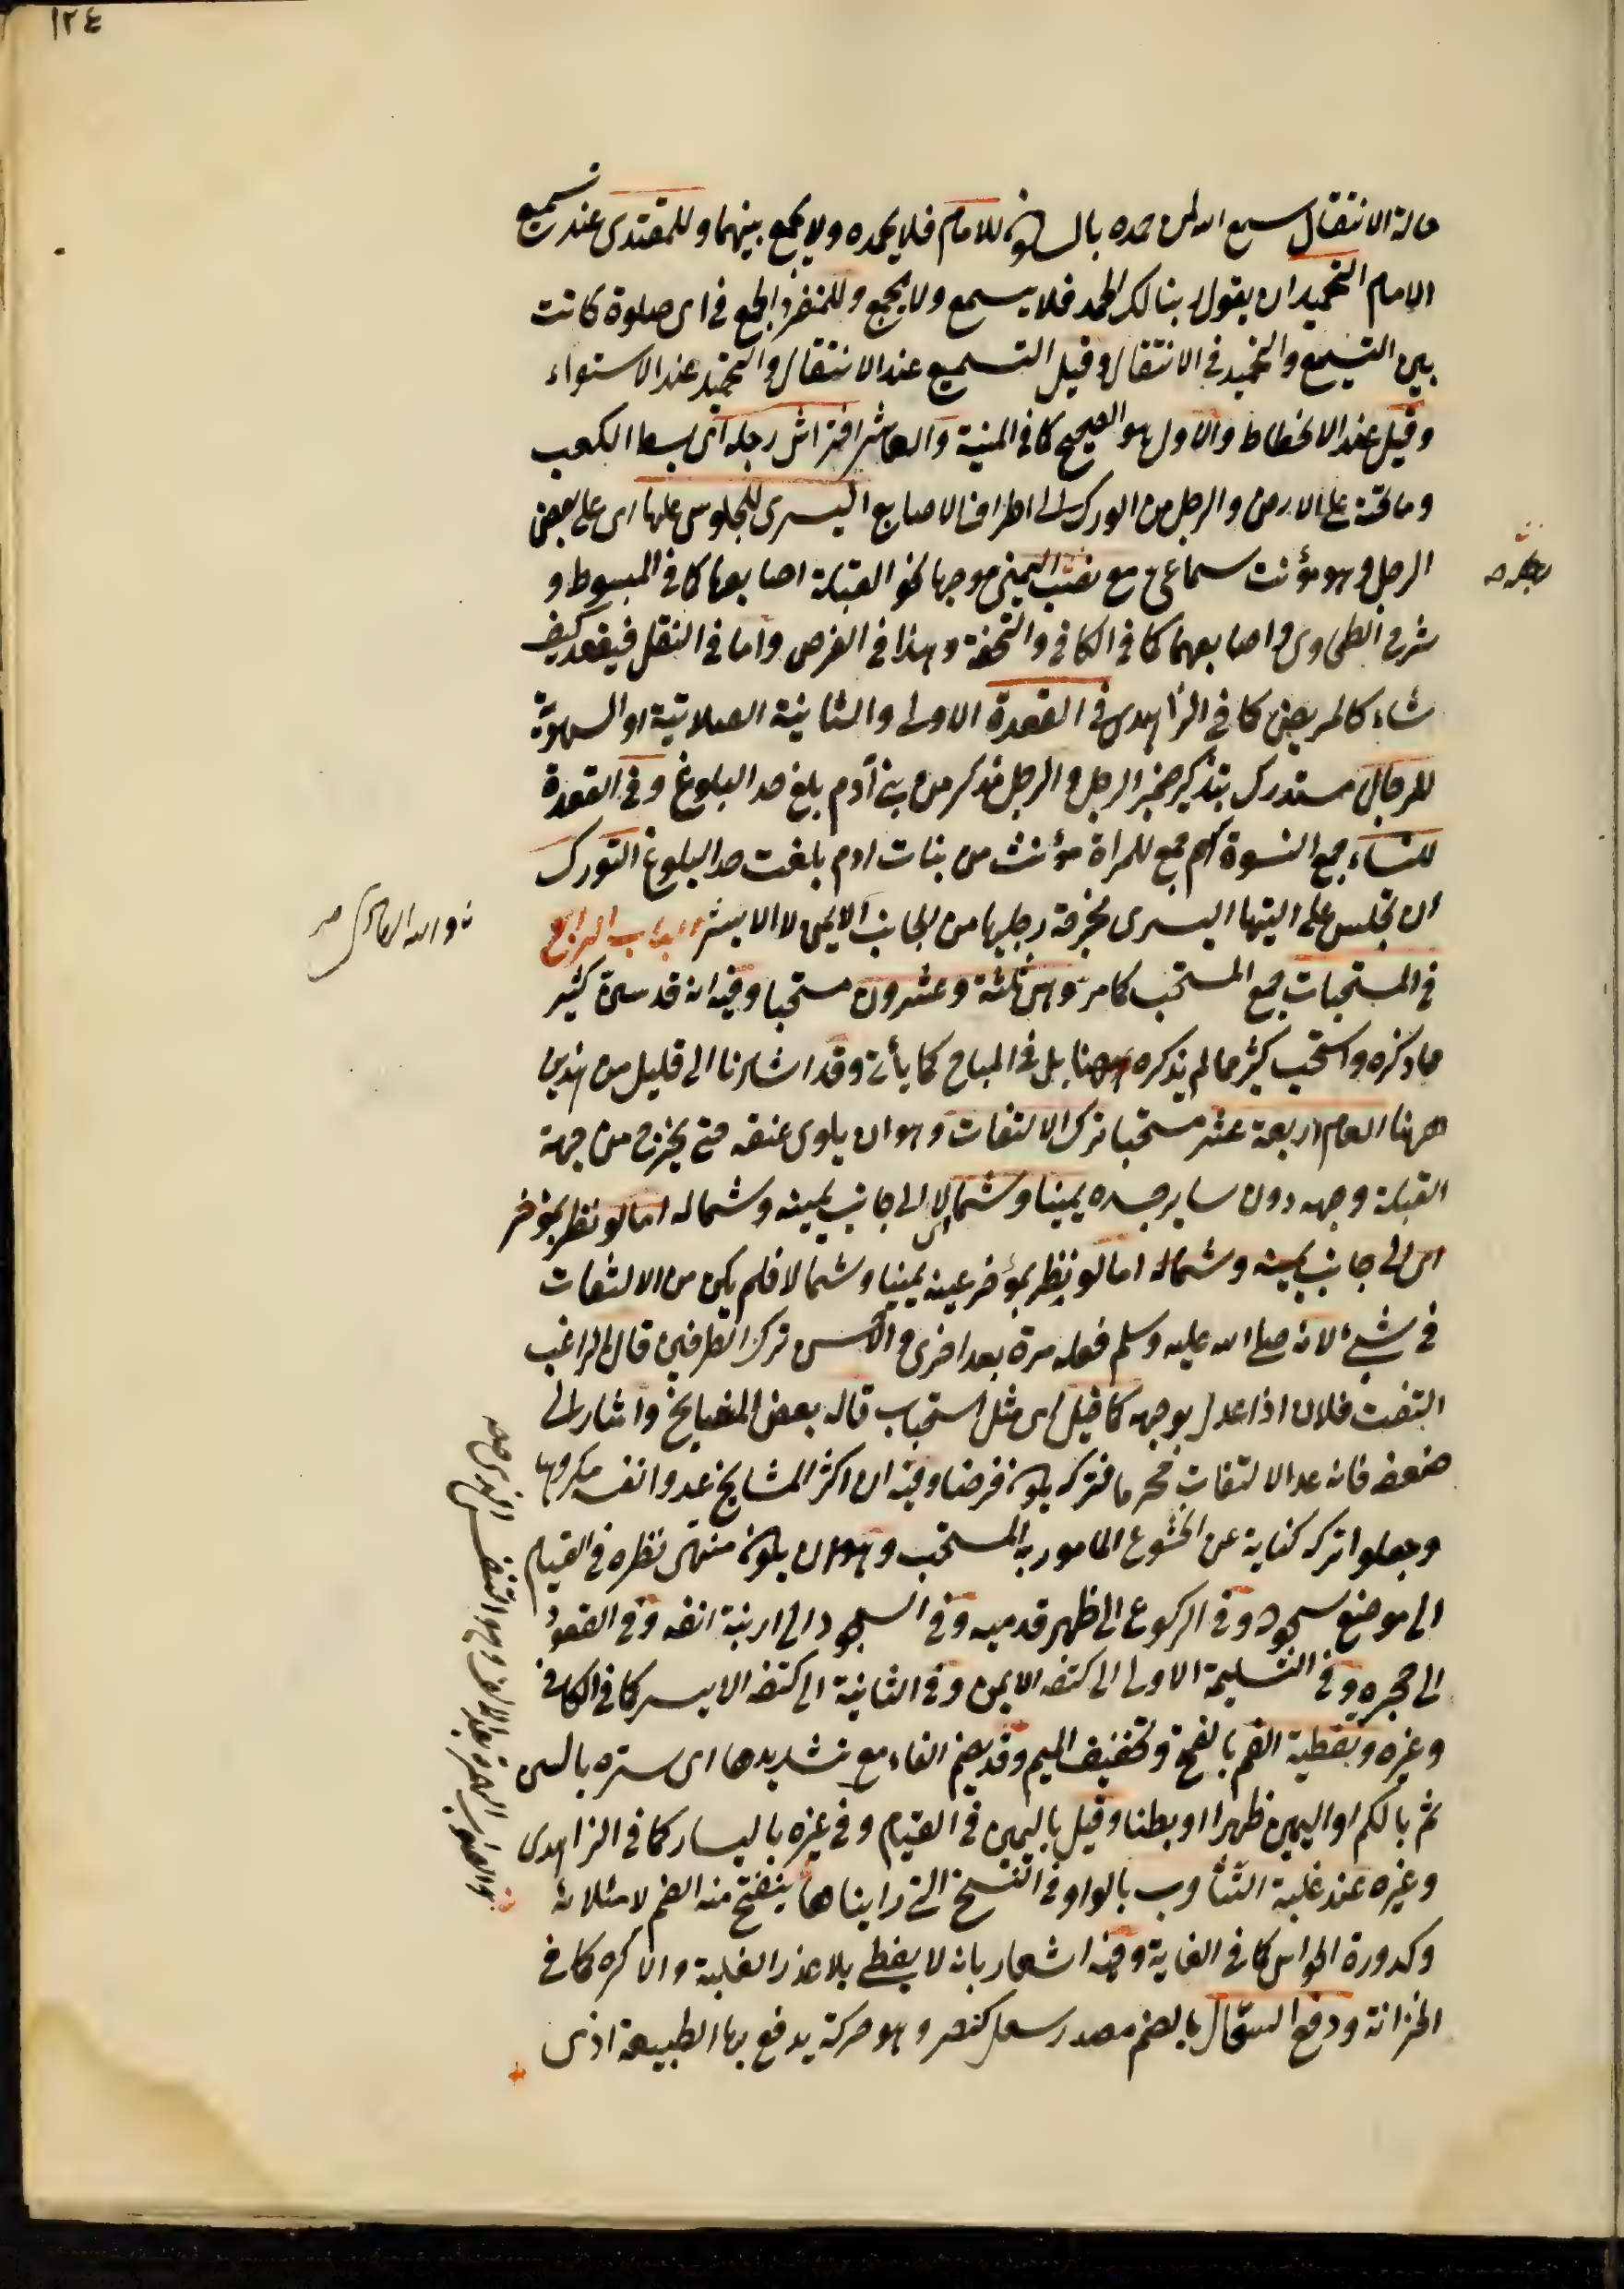 ١٢٤
حالة الانتقال سمع الله لمن حمده بالسكون للامام فلا يحمده ولا يجمع بينهما وللمقتدى عند تسميع
الامام التحميد ان يقول ربنا لك الحمد فلا يسمع ولا يجمع وللمنفرد الجمع فى اى صلوة كانت
بين التسميع والتحميد فى الانتقال وقيل التسميع عند الانتقال والتحميد عند الاستواء
وقيل عند الانحطاط والاول هو الصحيح كما فى المنية والعاشر افتراش رجله اى بسط الكعب
وما تحته على الارض والرجل من الورك الى اطراف الاصابع اليسرى للجلوس عليها اى على بعض
الرجل وهو مؤنث سماعى مع نصب اليمنى موجها نحو القبلة اصابعها كما فى المبسوط و
شرح الطحاوى واصابعهما كما فى الكافى والتحفة وهذا فى الفرض واما فى النفل فيقعد كيف
شاء كالمريض كما فى الزاهدى فى القعدة الاولى والثانية الصلاتية او السهوية
للرجال مستدرك بتذكير ضمير الرجل والرجل مذكر من بنى آدم بلغ حد البلوغ وفى القعدة
للنساء جمع النسوة اسم جمع للمراة مؤنث من بنات ادم بلغت حد البلوغ التورك
ان تجلس على اليتها اليسرى مخرجة رجليها من الجانب الايمن لا الايسر الباب الرابع
فى المستحبات جمع المستحب كما مر وهى ثلثة وعشرون مستحبا وفيه انه قد سن كثير
مما ذكره واستحب كثير مما لم يذكره ههنا بل فى المباح كما يأتى وقد اشارنا الى قليل من هذين
ههنا العام اربعة عشر مستحبا ترك الالتفات وهو ان يلوى عنقه حتى يخرج من جهة
القبلة وجهه دون ساير جسده يمينا وشمالا اى الى جانب يمينه وشماله اما لو نظر بمؤخر
اى الى جانب يمينه وشماله اما لو نظر بمؤخر عينه يمينا وشمالا فلم يكن من الالتفات
فى شئ لانه صلى الله عليه وسلم فعله مرة بعد اخرى والاحسن ترك الطرفين قال الراغب
التفت فلان اذا عدل بوجهه كما قيل اى مثل استحباب قاله بعض المشايخ واشار الى
ضعفه فانه عد الالتفات محرما فتركه يكون فرضا وفيه ان اكثر المشايخ عدوا نفسه مكروها
وجعلوا تركه كناية عن الخشوع المامور به المستحب وهو ان يكون منتهى نظره فى القيام
الى موضع سجوده وفى الركوع الى ظهر قدميه وفى السجود الى ارنبة انفه وفى القعود
الى حجره وفى التسليمة الاولى الى كتفه الايمن وفى الثانية الى كتفه الايسر كما فى الكافى
وغيره وتغطية الفم بالفتح وتخفيف الميم وقد يضم الفاء مع تشديدها اى ستره بالسن
ثم بالكم او اليمين ظهرا او بطنا وقيل باليمين فى القيام وفى غيره باليسار كما فى الزاهدى
وغيره عند غلبة التثأوب بالواو فى النسخ التى رايناها ينفتح منه الفم لامتلائه
وكدورة الحواس كما فى الغاية وفيه اشعار بانه لا يغطى بلا عذر الغلبة والا كره كما فى
الخزانة ودفع السعال بالضم مصدر سعل كنصر وهو حركة يدفع بها الطبيعة اذى